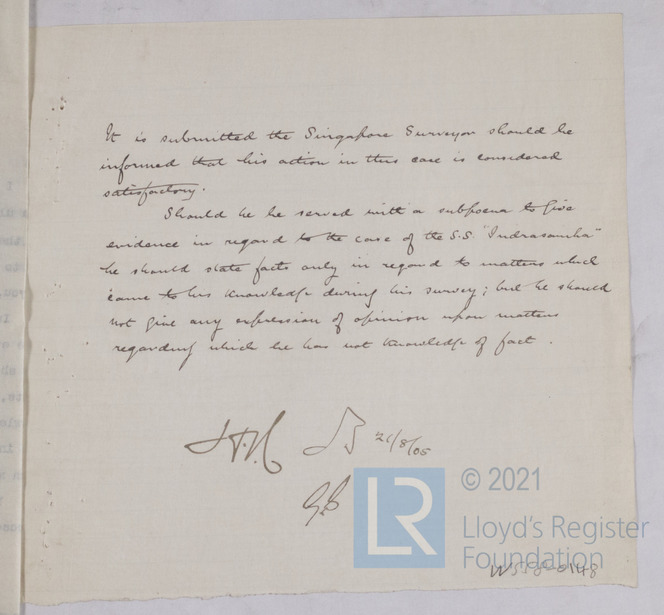 It is submitted the Singapore Surveyor should be
informed that his action in this case is considered
satisfactory.
Should he be served with a subpoena to give
evidence in regard to the case of the S.S. "Indrasamha"
he should state facts only in regard to matters which
came to his knowledge during his survey; but he should
not give any expression of opinion upon matters
regarding which he has not knowledge of fact.
21/8/05
LR
© 2021
Lloyd's Register
Foundation